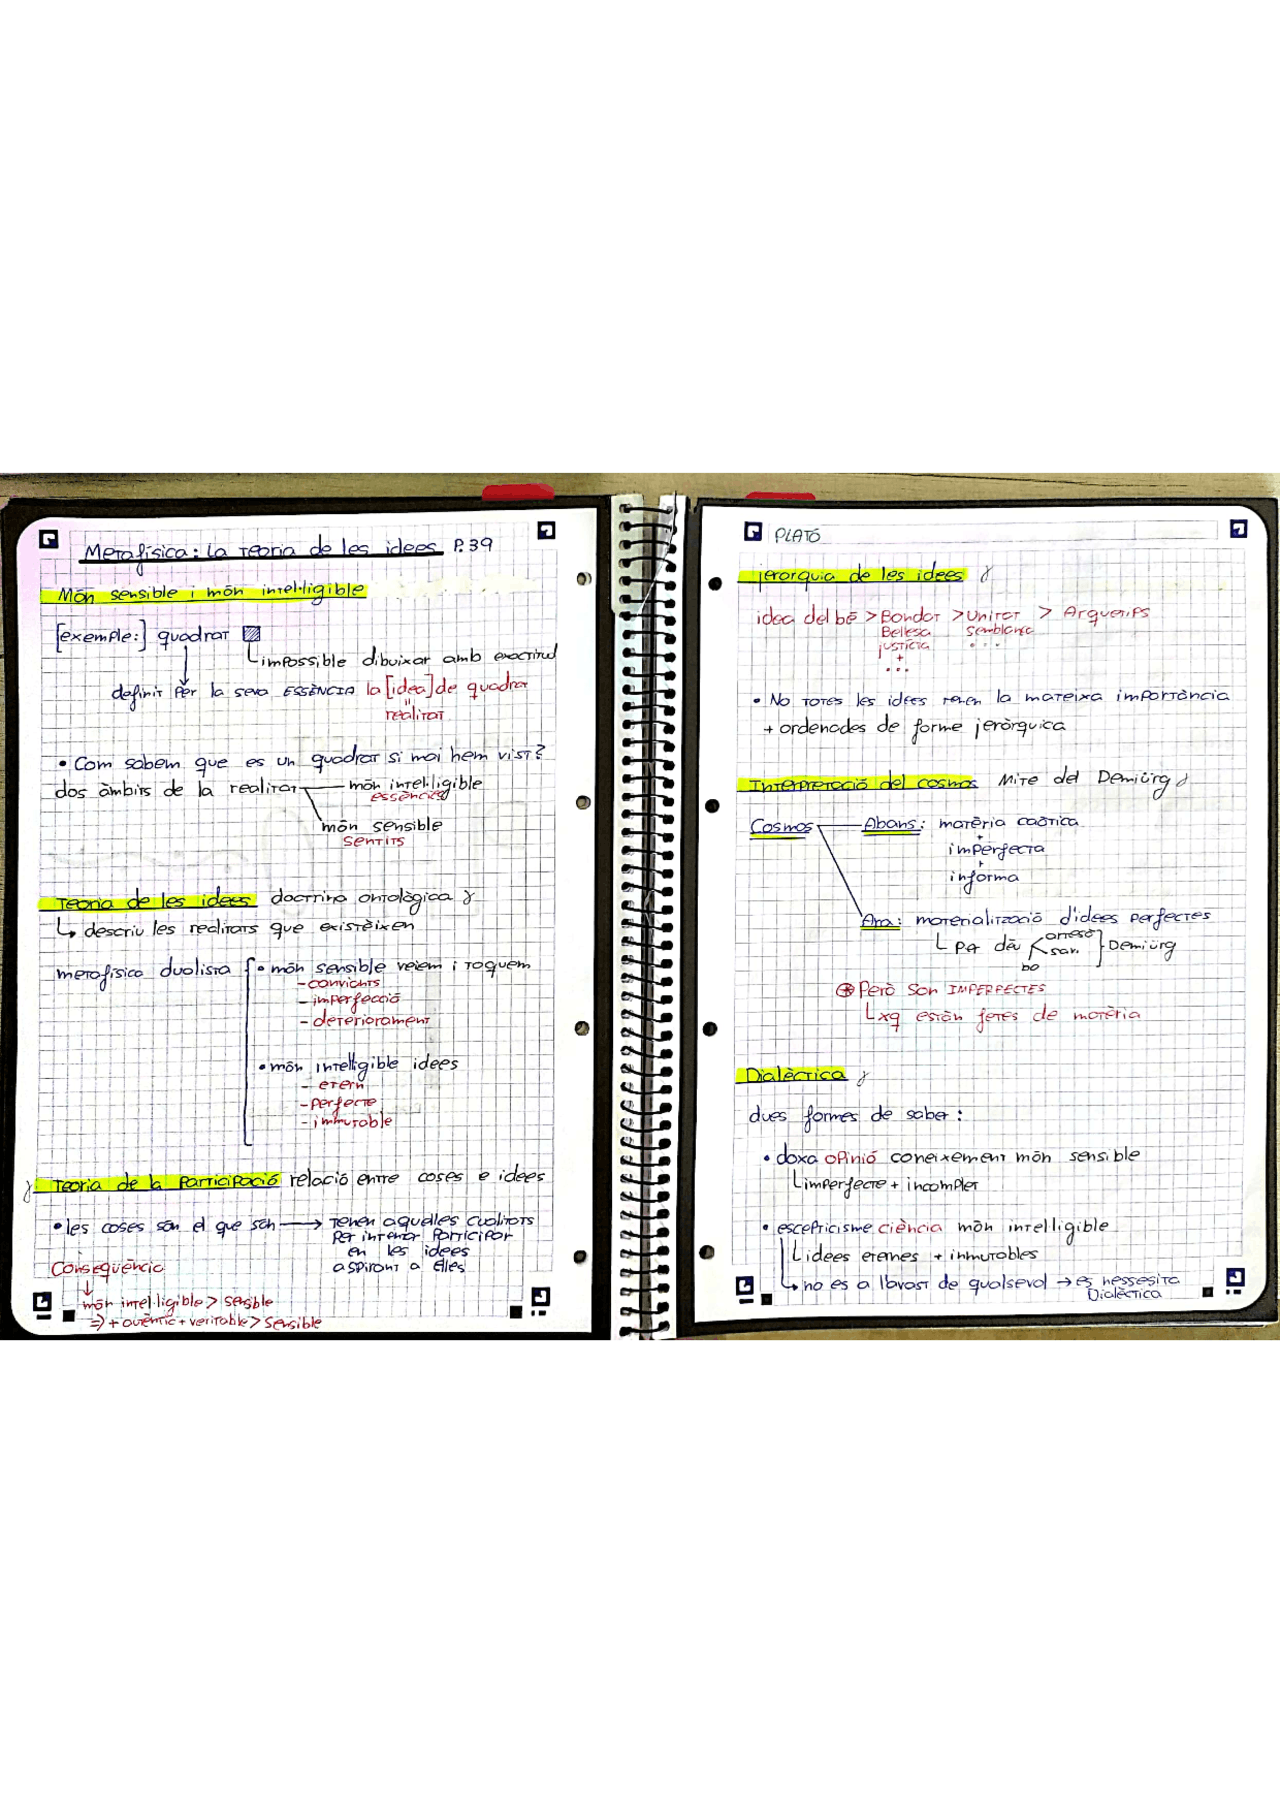 Metafísica: La Teoria de les idees P.39
Món sensible i món intel·ligible
[exemple:] quadrat
impossible dibuixar amb exactitud
definit Per la seva ESSÈNCIA la [idea] de quadrat
"
realitat
• Com sabem que es un quadrat si mai hem vist?
dos àmbits de la realitat món intel·ligible
essències
món sensible
sentits
Teoria de les idees doctrina ontològica
↳ descriu les realitats que existeixen
metafísica dualista • món sensible veiem i toquem
- canviants
- imperfecció
- deteriorament
• món intelligible idees
- etern
- perfecte
- immutable
Teoria de la Participació relació entre coses e idees
• les coses són el que són → Tenen aquelles cualitats
Per intentar Participar
en les idees
aspirant a elles
Conseqüència
↓
món intel·ligible > sensble
⇒ + autèntic + veritable > sensible
PLATÓ
jerarquia de les idees
idea del bé > Bondat > Unitat > Arquetips
Bellesa semblança
justícia ...
+
...
• No totes les idees tenen la mateixa importància
+ ordenades de forme jeràrquica
Interpretació del cosmos Mite del Demiürg
Cosmos Abans: matèria caòtica
+
imperfecta
+
informa
Ara: materialització d'idees perfectes
artesà
san } Demiürg
bo
Però son IMPERFECTES
xq están fetes de matèria
Dialèctica
dues formes de saber:
• doxa opinió coneixement món sensible
imperfecte + incomplet
• escepticisme ciència món intelligible
idees eternes + inmutables
↳ no es a l'avast de qualsevol → es nessesita
Dialèctica